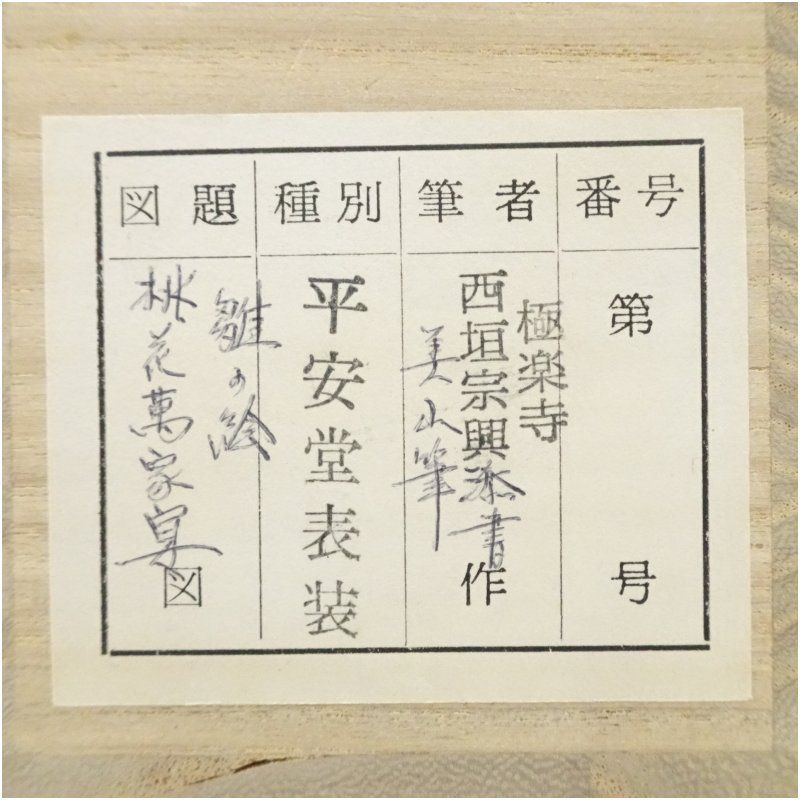 番号
第　号
筆者
極楽寺
西垣宗興添書
美山筆
作
種別
平安堂表装
図題
雛の絵
桃花萬家宴
図